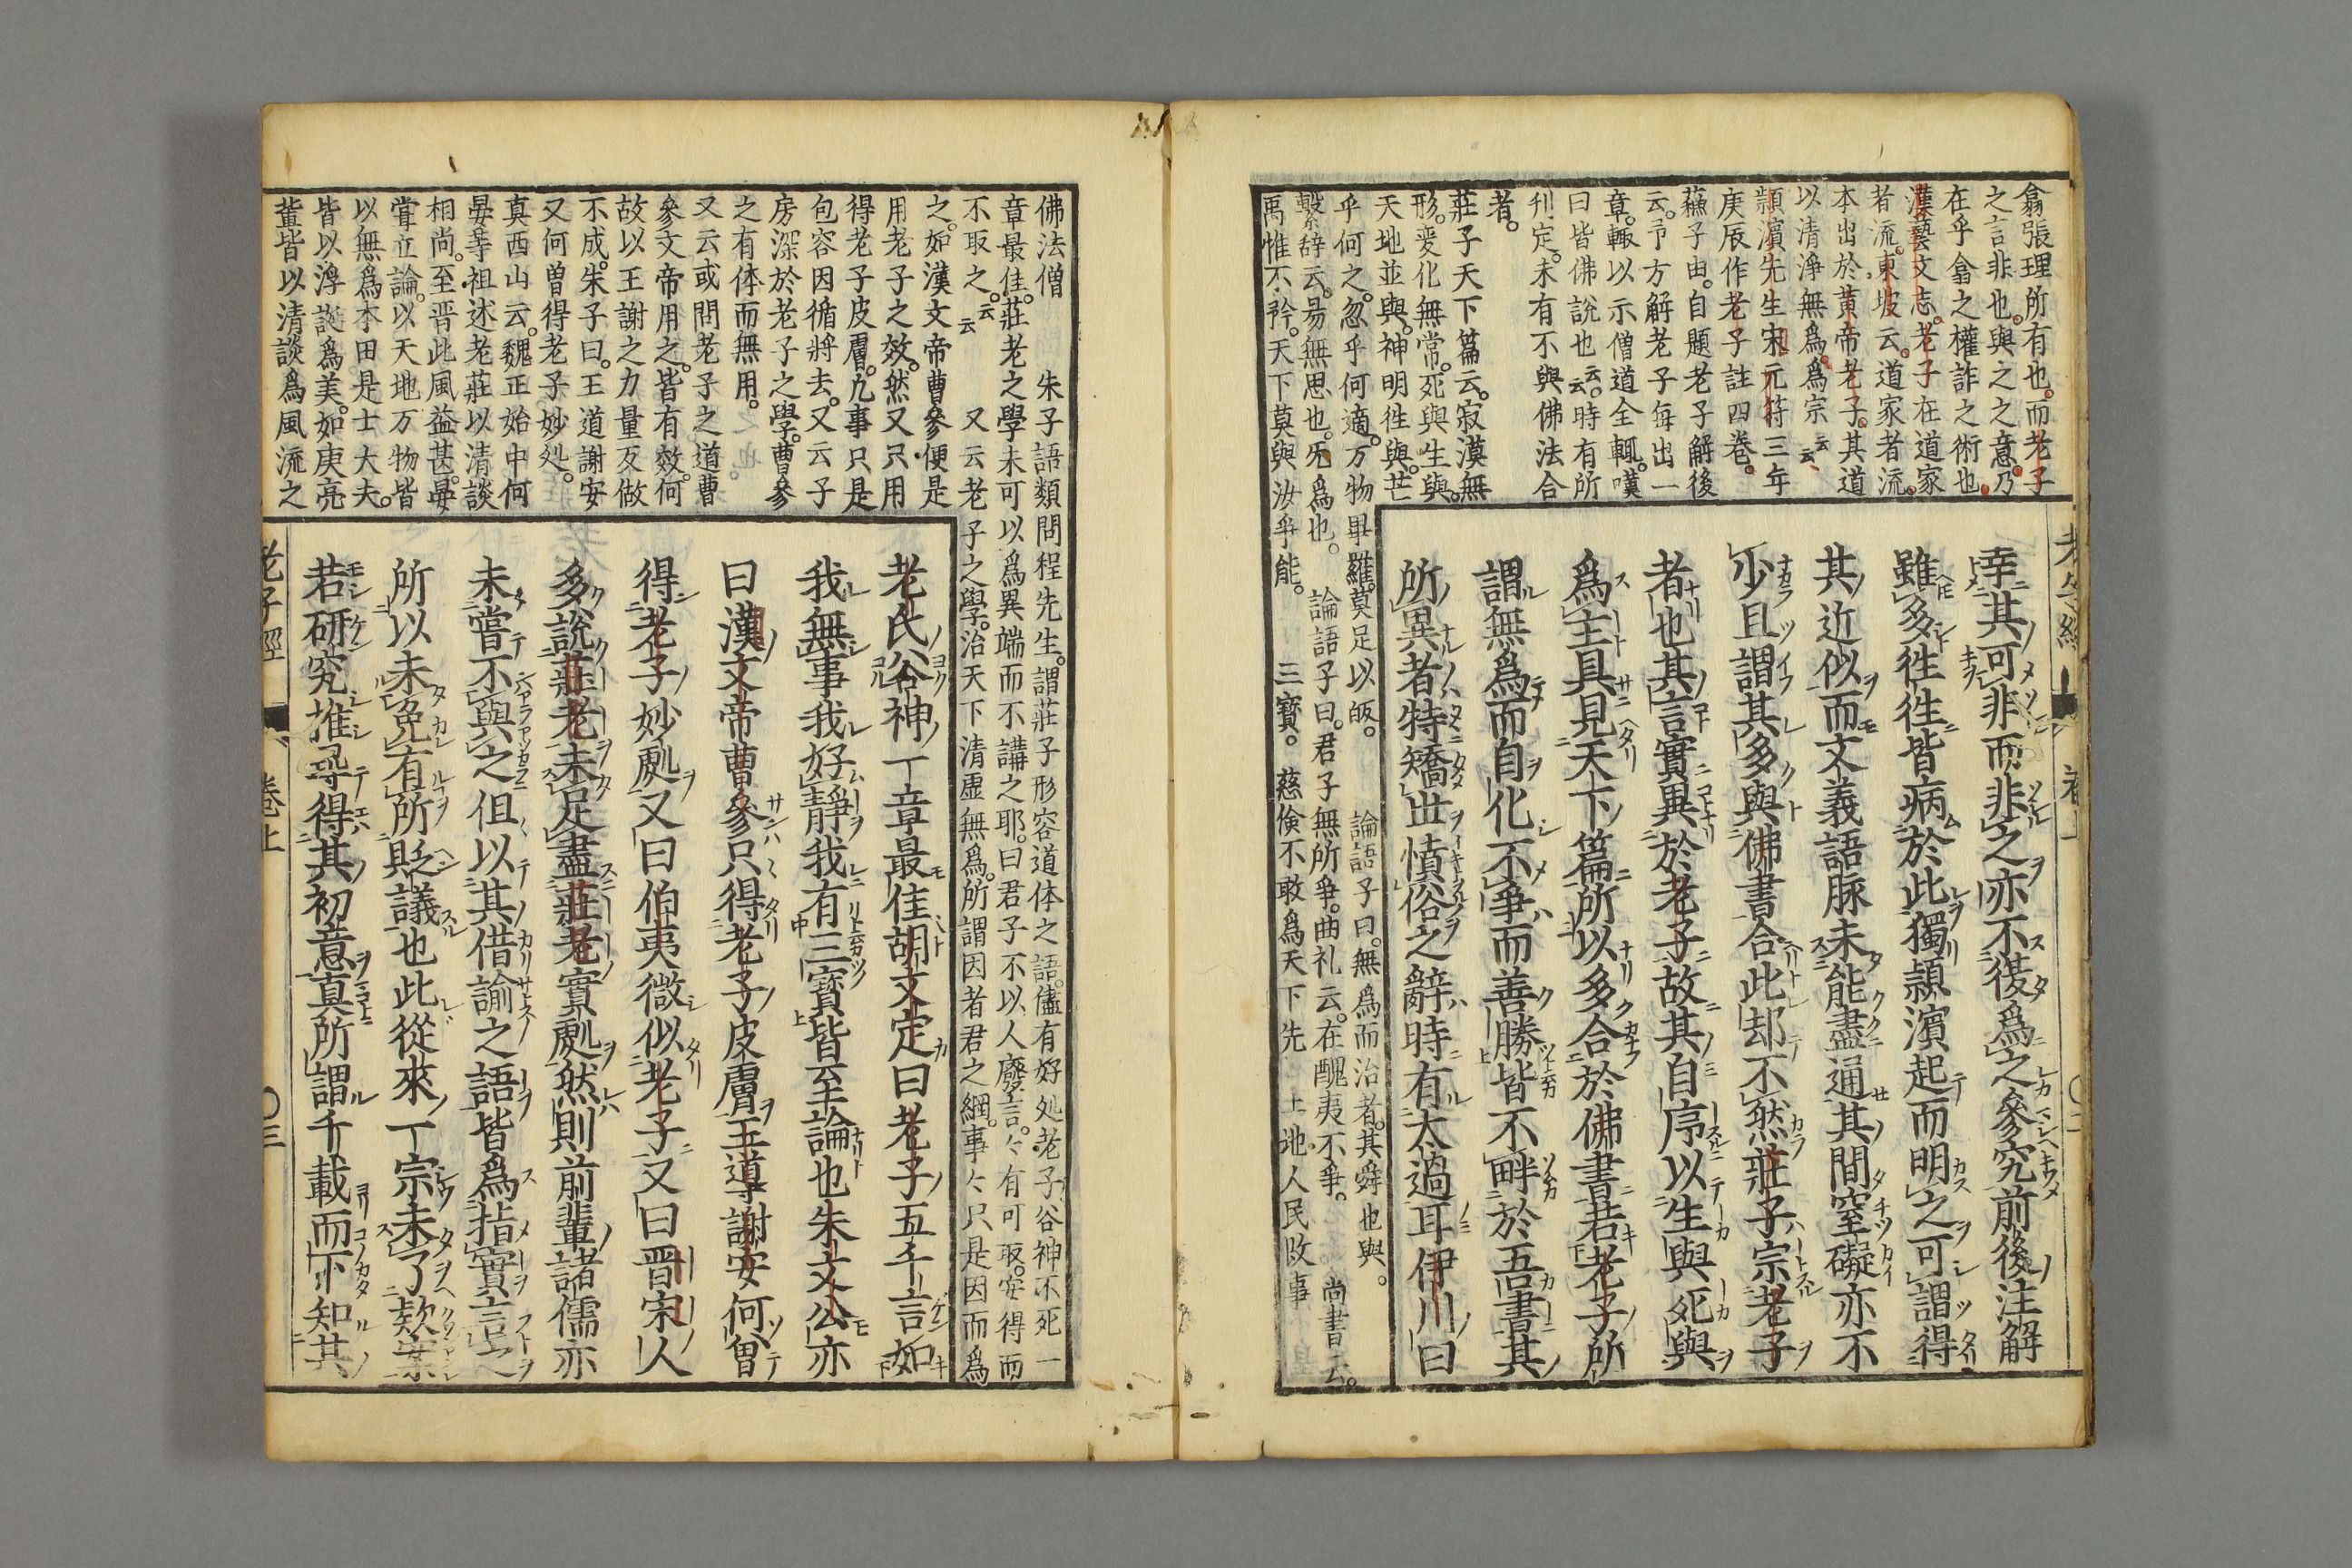 翕張理所有也。而老子
之言非也。與之之意。乃
在乎翕之權詐之術也。
漢藝文志。老子在道家
者流。東坡云。道家者流。
本出於黃帝老子。其道
以清淨無爲。爲宗云云
頴濱先生宋元符三年
庚辰作老子註四卷。
蘓子由。自題老子解後
云。予方解老子每出一
章。輙以示僧道全輙。嘆
曰皆佛說也云云。時有所
刋定。未有不與佛法合
者。
莊子天下篇云。寂漠無
形。変化無常。死與生與。
天地並與。神明徃與。芒
乎何之。忽乎何適。万物畢羅。莫足以皈。 論語子曰。無爲而治者。其舜也與。
繫辞云。昜無思也。旡爲也。 論語子曰。君子無所爭。曲礼云。在醜夷不爭。 尚書云。
禹惟不矜。天下莫與汝爭能。 三寶。慈儉不敢爲天下先
幸其可非而非之亦不復爲之參究前後注解
雖多徃徃皆病於此獨頴濱起而明之可謂得
其近似而文義語脉未能盡通其間窒礙亦不
少且謂其多與佛書合此却不然莊子宗老子
者也其言實異於老子故其自序以生與死與
爲主具見天下篇所以多合於佛書若老子所
謂無爲而自化不爭而善勝皆不畔於吾書其
所異者特矯世憤俗之辭時有太過耳伊川曰
佛法僧 朱子語類問程先生。謂莊子形容道体之語。儘有好処老子谷神不死一
章最佳。莊老之學未可以爲異端而不講之耶。曰君子不以人廢言。々有可取。安得而
不取之。云云 又云老子之學。治天下清虛無爲。所謂因者君之綱。事々只是因而爲
之。如漢文帝曹參便是
用老子之效。然又只用
得老子皮膚。凢事只是
包容因循將去。又云子
房深於老子之學。曹參
之有体而無用。
又云或問老子之道曹
參文帝用之。皆有效。何
故以王謝之力量反做
不成。朱子曰。王道謝安
又何曾得老子妙処。
真西山云。魏正始中何
晏䓁祖述老莊以清談
相尚。至晋此風益甚。晏
甞立論。以天地万物皆
以無爲本田是士大夫。
皆以浮誕爲美。如庾亮
軰皆以清談爲風流之
老氏谷神一章最佳胡文定曰老子五千言如
我無事我好靜我有三寶皆至論也朱文公亦
曰漢文帝曹參只得老子皮膚王導謝安何曾
得老子妙處又曰伯夷微似老子又曰晋宋人
多說莊老未足盡莊老實處然則前輩諸儒亦
未嘗不與之但以其借諭之語皆爲指實言之
所以未免有所貶議也此從來一宗未了欵案
若研究推尋得其初意真所謂千載而下知其
老子經 卷上 〇三